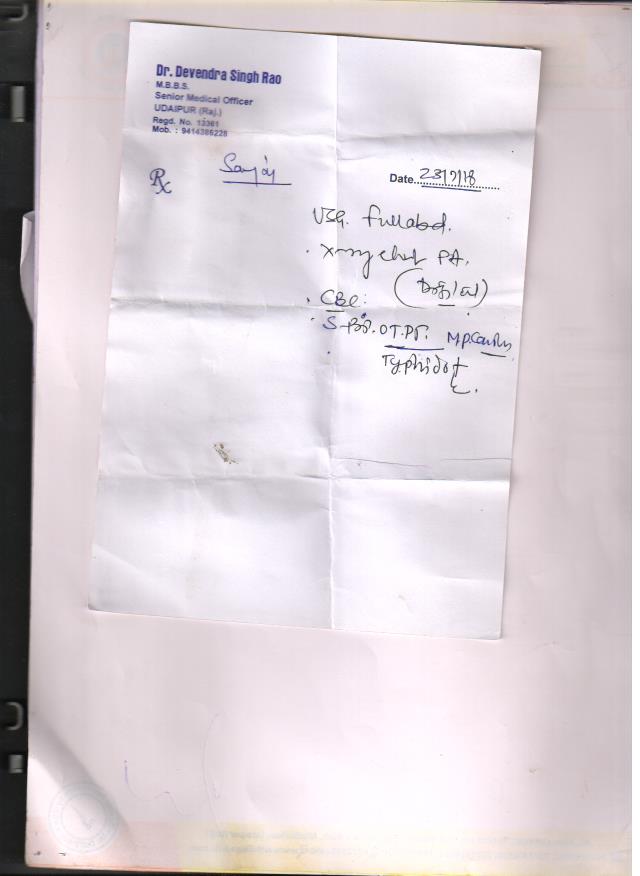 Dr. Devendra Singh Rao
M.B.B.S.
Senior Medical Officer
UDAIPUR (Raj.)
Regd. No. 13361
Mob. : 9414386228
Rx
Date 23/7/18
USG. fullabd.
X-ray chest PA.
(Digital)
CBC.
S-Bil. OT. PT. M.P.
Typhidot